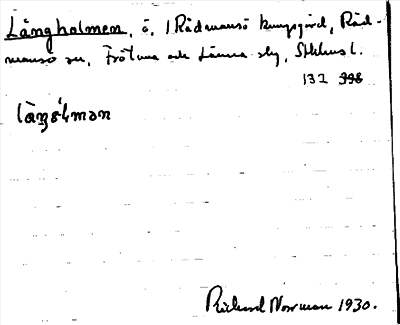 Långholmen, ö, 1 Rådmansö kungsgård, Råd-
mansö sn, Frötuna och Länna slg, Sthlms l.
132 998
làŋ́əl'mən
Rickard Norrman 1930.